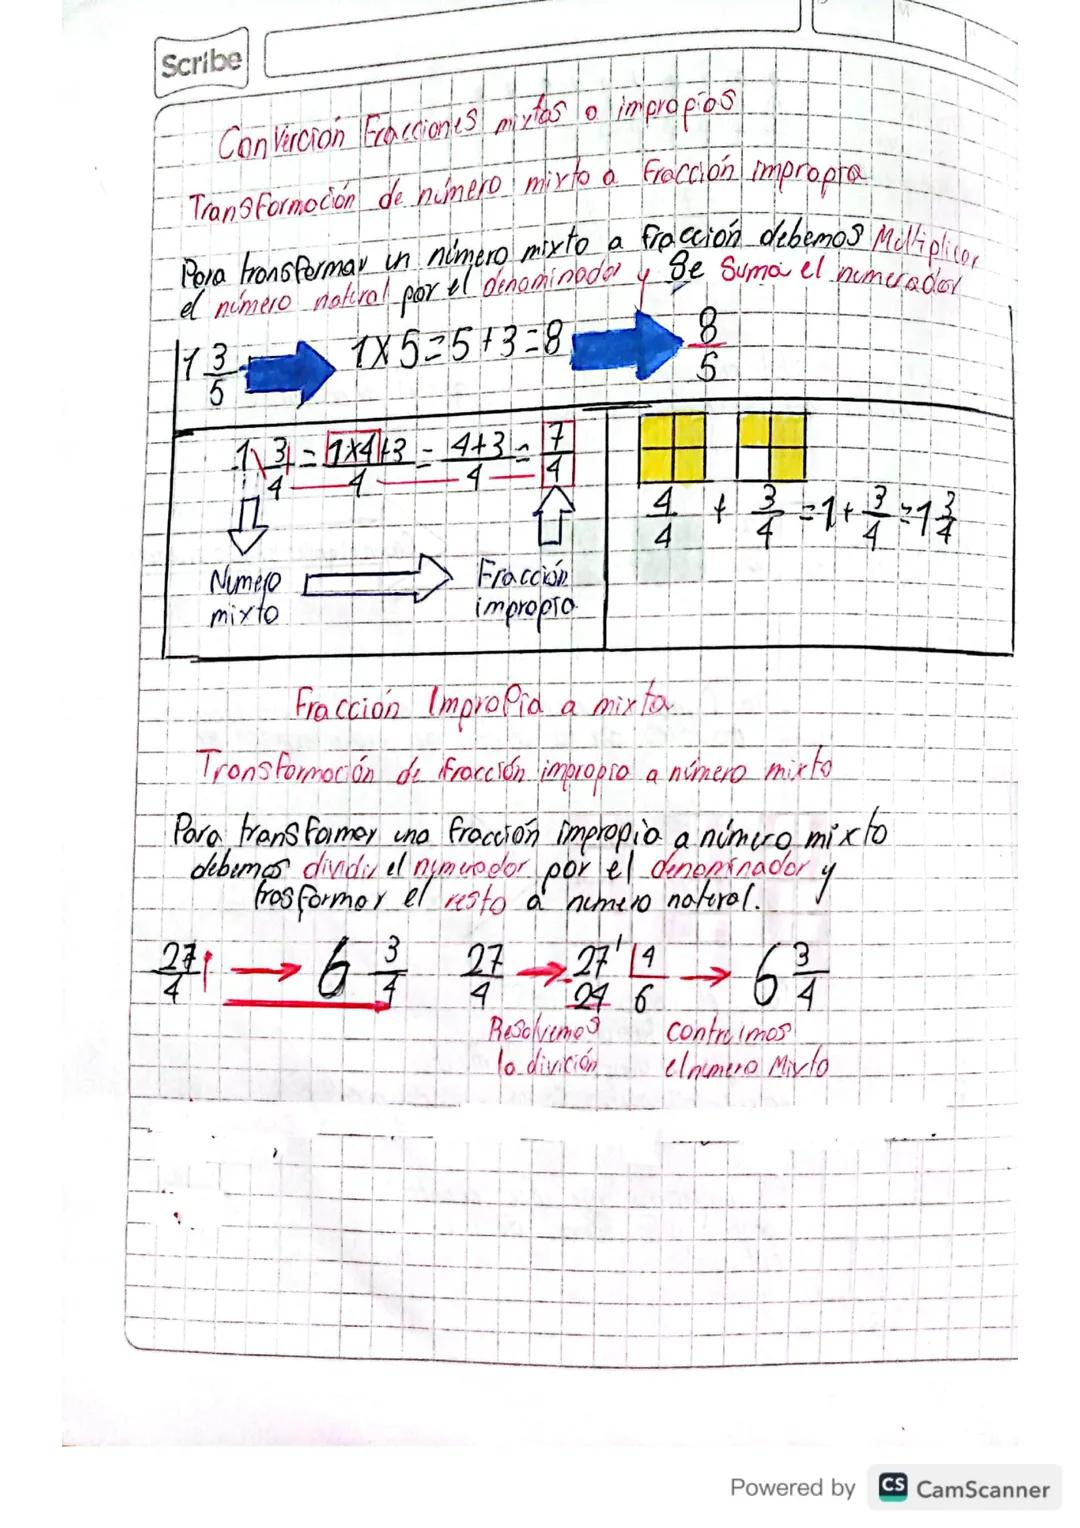 Scribe
Converción Fracciones mixtas o impropios
Transformación de número mixto a Fracción impropia
Para transformar un número mixto a fracción debemos Multiplicar
el número natural por el denominador y Se Suma el numerador
1 3/5 1x5=5+3=8 8/5
1 3/4 = 1x4+3/4 = 4+3/4 = 7/4
4/4 + 3/4 = 1 + 3/4 = 1 3/4
Número Fracción
mixto impropia
Fracción Impropia a mixta
Transformación de fracción impropia a número mixto
Para transformar una fracción impropia a número mixto
debemos dividir el numerador por el denominador y
trasformar el resto a número natural.
27/4 6 3/4 27/4 27' 4 6 3/4
24 6
Resolvemos contruimos
la divición el número Mixto
Powered by CS CamScanner